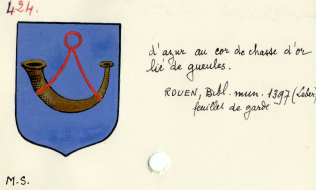 424.
d'azur au cor de chasse d'or
lié de gueules.
ROUEN, Bibl. mun. 1397 (Leber)
feuillet de garde
M.S.